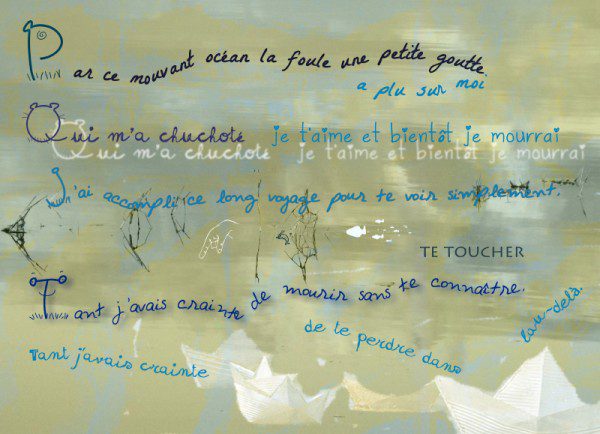 Par ce mouvant océan la foule une petite goutte
a plu sur moi
Qui m'a chuchoté je t'aime et bientôt je mourrai
Qui m'a chuchoté je t'aime et bientôt je mourrai
J'ai accompli ce long voyage pour te voir simplement.
TE TOUCHER
Tant j'avais crainte de mourir sans te connaître.
Tant j'avais crainte de te perdre dans l'au-delà.